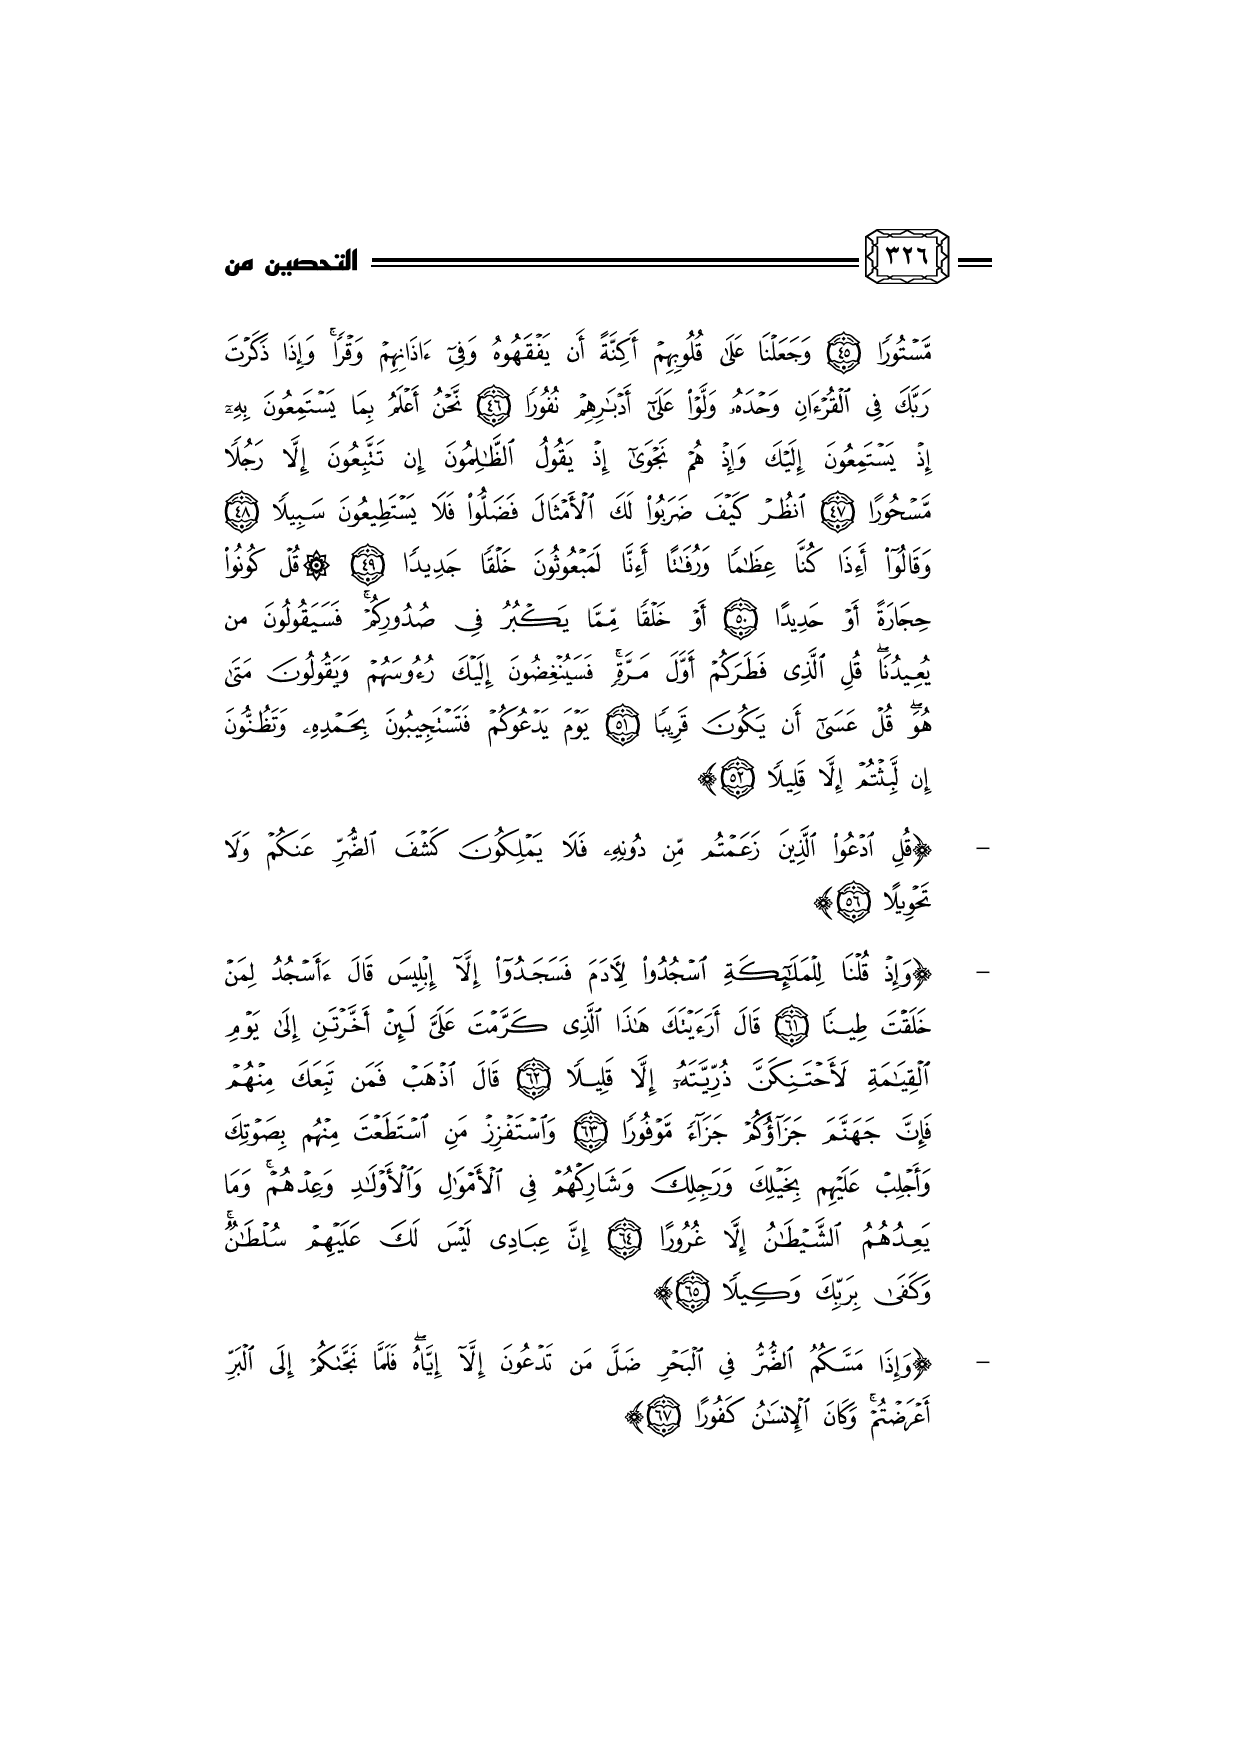 ٣٢٦ التحصين من
مَّسْتُورًا ٤٥ وَجَعَلْنَا عَلَىٰ قُلُوبِهِمْ أَكِنَّةً أَن يَفْقَهُوهُ وَفِىٓ ءَاذَانِهِمْ وَقْرًا ۚ وَإِذَا ذَكَرْتَ
رَبَّكَ فِى ٱلْقُرْءَانِ وَحْدَهُۥ وَلَّوْا۟ عَلَىٰٓ أَدْبَـٰرِهِمْ نُفُورًا ٤٦ نَّحْنُ أَعْلَمُ بِمَا يَسْتَمِعُونَ بِهِۦٓ
إِذْ يَسْتَمِعُونَ إِلَيْكَ وَإِذْ هُمْ نَجْوَىٰٓ إِذْ يَقُولُ ٱلظَّـٰلِمُونَ إِن تَتَّبِعُونَ إِلَّا رَجُلًا
مَّسْحُورًا ٤٧ ٱنظُرْ كَيْفَ ضَرَبُوا۟ لَكَ ٱلْأَمْثَالَ فَضَلُّوا۟ فَلَا يَسْتَطِيعُونَ سَبِيلًا ٤٨
وَقَالُوٓا۟ أَءِذَا كُنَّا عِظَـٰمًا وَرُفَـٰتًا أَءِنَّا لَمَبْعُوثُونَ خَلْقًا جَدِيدًا ٤٩ ۞قُلْ كُونُوا۟
حِجَارَةً أَوْ حَدِيدًا ٥٠ أَوْ خَلْقًا مِّمَّا يَكْبُرُ فِى صُدُورِكُمْ ۚ فَسَيَقُولُونَ مَن
يُعِيدُنَا ۖ قُلِ ٱلَّذِى فَطَرَكُمْ أَوَّلَ مَرَّةٍ ۚ فَسَيُنْغِضُونَ إِلَيْكَ رُءُوسَهُمْ وَيَقُولُونَ مَتَىٰ
هُوَ ۖ قُلْ عَسَىٰٓ أَن يَكُونَ قَرِيبًا ٥١ يَوْمَ يَدْعُوكُمْ فَتَسْتَجِيبُونَ بِحَمْدِهِۦ وَتَظُنُّونَ
إِن لَّبِثْتُمْ إِلَّا قَلِيلًا ٥٢﴾
- ﴿قُلِ ٱدْعُوا۟ ٱلَّذِينَ زَعَمْتُم مِّن دُونِهِۦ فَلَا يَمْلِكُونَ كَشْفَ ٱلضُّرِّ عَنكُمْ وَلَا
تَحْوِيلًا ٥٦﴾
- ﴿وَإِذْ قُلْنَا لِلْمَلَـٰٓئِكَةِ ٱسْجُدُوا۟ لِـَٔادَمَ فَسَجَدُوٓا۟ إِلَّآ إِبْلِيسَ قَالَ ءَأَسْجُدُ لِمَنْ
خَلَقْتَ طِينًا ٦١ قَالَ أَرَءَيْتَكَ هَـٰذَا ٱلَّذِى كَرَّمْتَ عَلَىَّ لَئِنْ أَخَّرْتَنِ إِلَىٰ يَوْمِ
ٱلْقِيَـٰمَةِ لَأَحْتَنِكَنَّ ذُرِّيَّتَهُۥٓ إِلَّا قَلِيلًا ٦٢ قَالَ ٱذْهَبْ فَمَن تَبِعَكَ مِنْهُمْ
فَإِنَّ جَهَنَّمَ جَزَآؤُكُمْ جَزَآءً مَّوْفُورًا ٦٣ وَٱسْتَفْزِزْ مَنِ ٱسْتَطَعْتَ مِنْهُم بِصَوْتِكَ
وَأَجْلِبْ عَلَيْهِم بِخَيْلِكَ وَرَجِلِكَ وَشَارِكْهُمْ فِى ٱلْأَمْوَٰلِ وَٱلْأَوْلَـٰدِ وَعِدْهُمْ ۚ وَمَا
يَعِدُهُمُ ٱلشَّيْطَـٰنُ إِلَّا غُرُورًا ٦٤ إِنَّ عِبَادِى لَيْسَ لَكَ عَلَيْهِمْ سُلْطَـٰنٌ ۚ
وَكَفَىٰ بِرَبِّكَ وَكِيلًا ٦٥﴾
- ﴿وَإِذَا مَسَّكُمُ ٱلضُّرُّ فِى ٱلْبَحْرِ ضَلَّ مَن تَدْعُونَ إِلَّآ إِيَّاهُ ۖ فَلَمَّا نَجَّىٰكُمْ إِلَى ٱلْبَرِّ
أَعْرَضْتُمْ ۚ وَكَانَ ٱلْإِنسَـٰنُ كَفُورًا ٦٧﴾